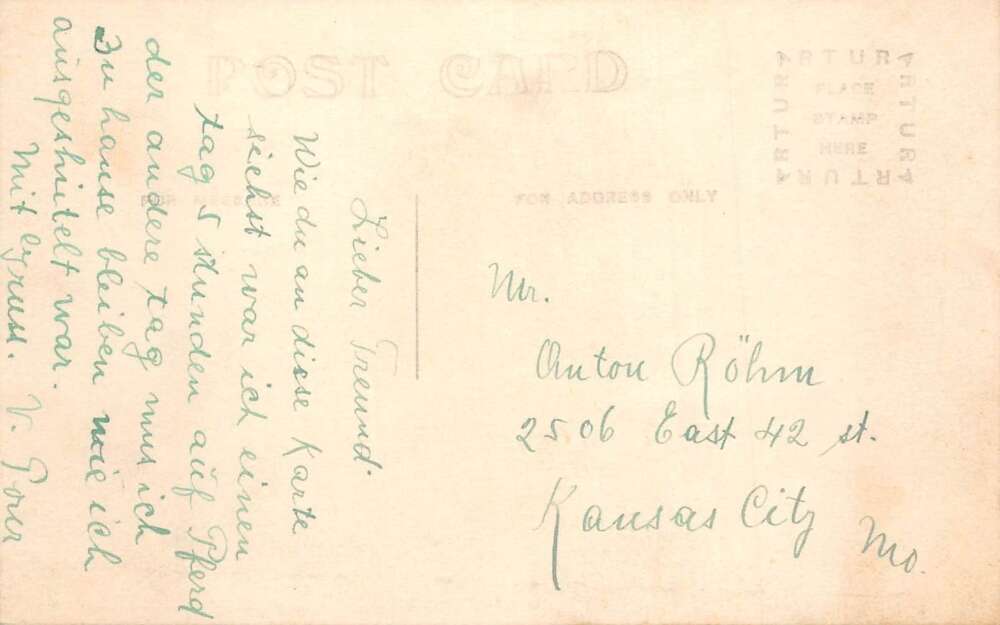 POST CARD
ARTURA
ARTURA
ARTURA
ARTURA
PLACE
STAMP
HERE
FOR MESSAGE
FOR ADDRESS ONLY
Lieber Freund.
Wie du an diese Karte
siehst war ich einen
tag 5 stunden auf Pferd
der andere tag mus ich
zu hause bleiben wie ich
ausgeshutelt war.
Mit Gruss. V.
Mr.
Anton Röhm
2506 East 42 st.
Kansas City Mo.